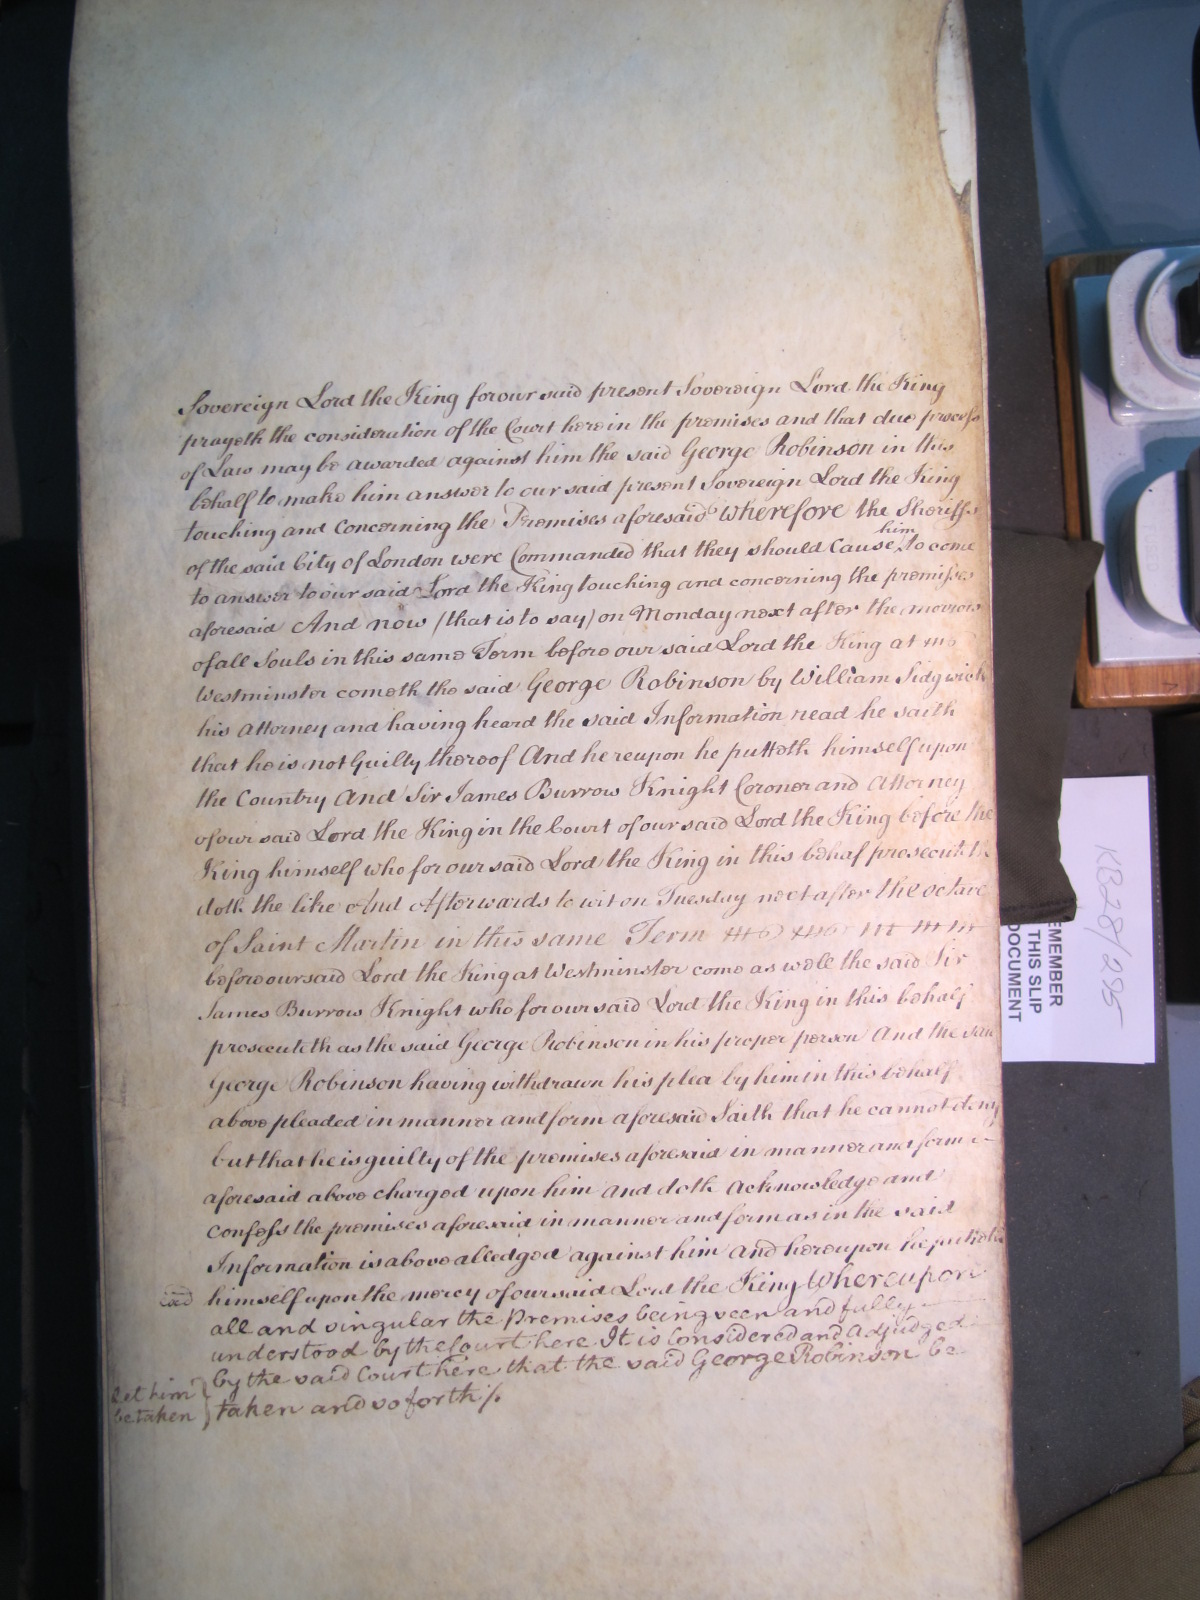 Sovereign Lord the King for our said present Sovereign Lord the King
prayeth the consideration of the Court here in the premises and that due process
of Law may be awarded against him the said George Robinson in this
behalf to make him answer to our said present Sovereign Lord the King
touching and Concerning the Premises aforesaid Wherefore the Sheriffs
of the said City of London were Commanded that they should Cause him to come
to answer to our said Lord the King touching and concerning the premisses
aforesaid And now (that is to say) on Monday next after the morrow
of all Souls in this same Term before our said Lord the King at
Westminster cometh the said George Robinson by William Sidgwick
his Attorney and having heard the said Information read he saith
that he is not Guilty thereof And hereupon he putteth himself upon
the Country And Sir James Burrow Knight Coroner and Attorney
of our said Lord the King in the Court of our said Lord the King before the
King himself who for our said Lord the King in this behaf prosecuteth
doth the like And Afterwards to wit on Tuesday next after the octave
of Saint Martin in this same Term
before our said Lord the King at Westminster come as well the said Sir
James Burrow Knight who for our said Lord the King in this behalf
prosecuteth as the said George Robinson in his proper person And the said
George Robinson having withdrawn his plea by him in this behalf
above pleaded in manner and form aforesaid Saith that he cannot deny
but that he is guilty of the premises aforesaid in manner and form
aforesaid above charged upon him and doth acknowledge and
confess the premises aforesaid in manner and form as in the said
Information is above alledged against him And hereupon he putteth
himself upon the mercy of our said Lord the King Whereupon
all and singular the Premises being seen and fully
understood by the Court here It is Considered and Adjudged
by the said Court here that the said George Robinson be
taken and so forth /.
Let him
be taken
KB28/295
REMEMBER
THIS SLIP
DOCUMENT